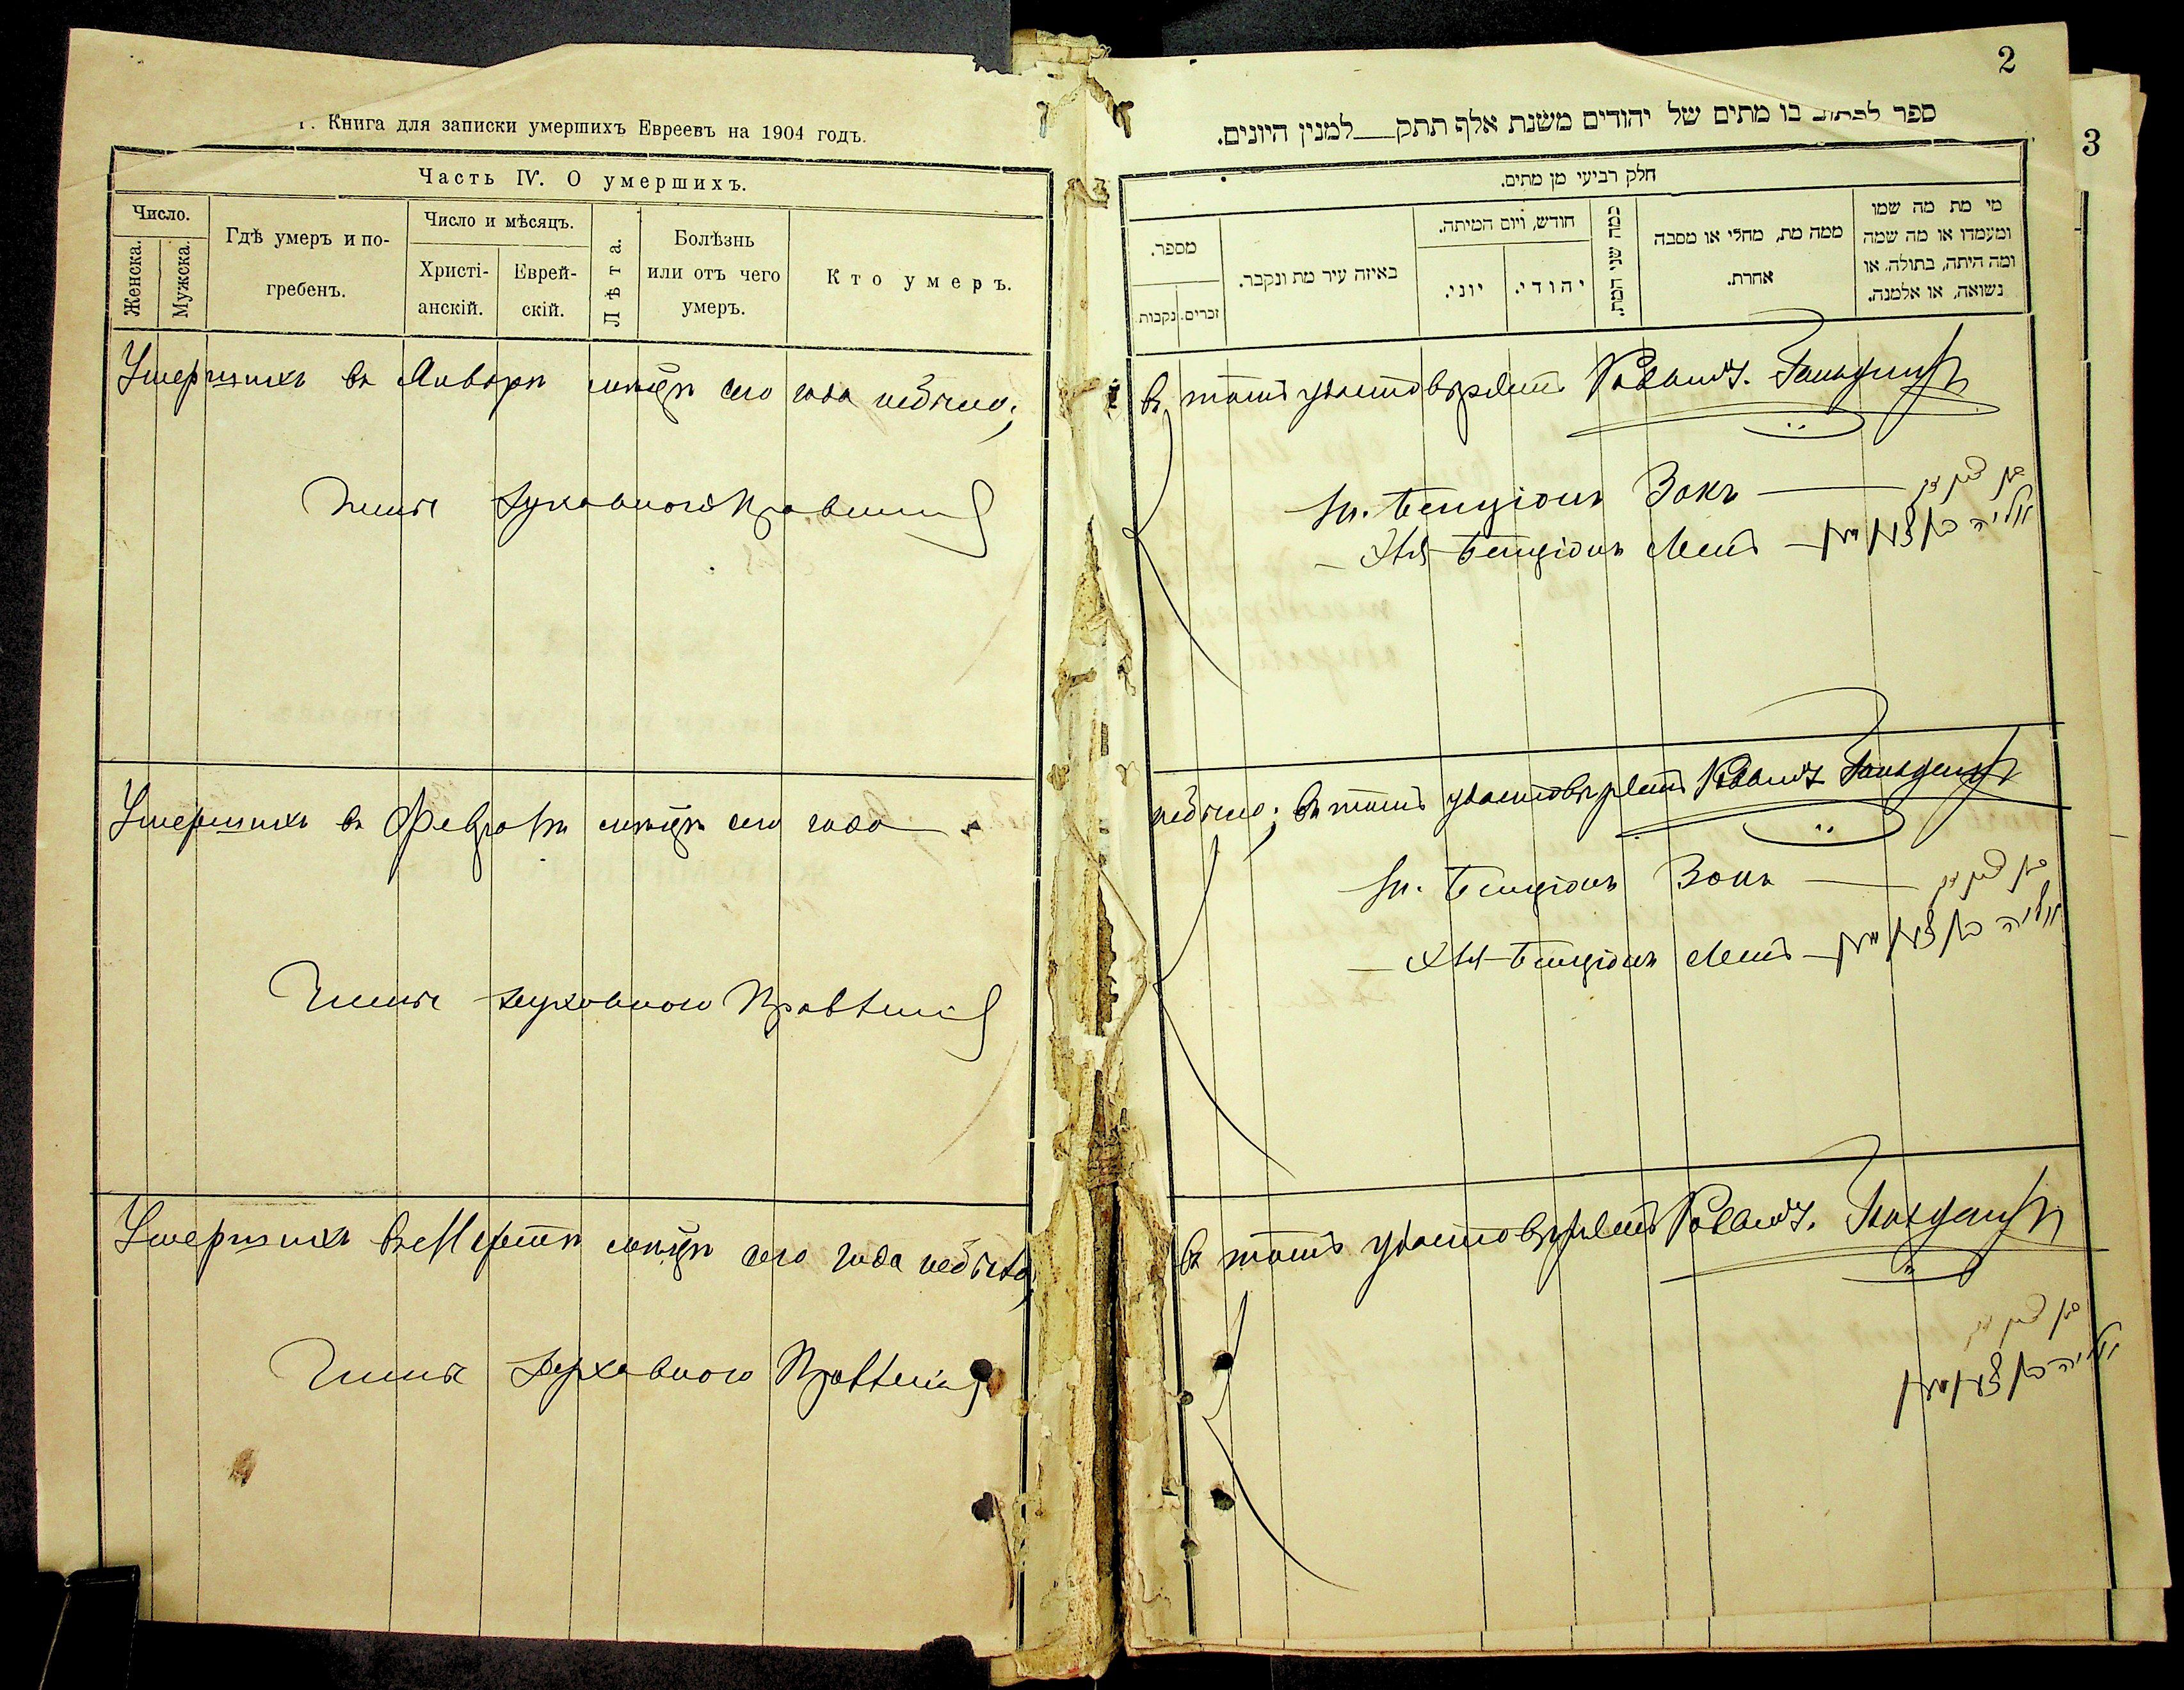 Книга для записки умершихъ Евреевъ на 1904 годъ.
Часть IV. О умершихъ.
Число.
Женска.
Мужска.
Гдѣ умеръ и по-
гребенъ.
Число и мѣсяцъ.
Христі-
анскій.
Еврей-
скій.
Лѣта.
Болѣзнь
или отъ чего
умеръ.
Кто умеръ.
Умершихъ въ Январѣ мѣсяцѣ сего года небыло;
Члены Духовного Правленія
Умершихъ въ Февралѣ мѣсяцѣ сего года
Члены Духовного Правленія
Умершихъ въ Мартѣ мѣсяцѣ сего года небыло;
Члены Духовного Правленія
2
ספר לכתוב בו מתים של יהודים משנת אלף תתק למנין היונים.
חלק רביעי מן מתים.
מספר.
נקבות
זכרים.
באיזה עיר מת ונקבר.
חודש, ויום המיתה.
יוני.
יהודי.
כמה שני המת.
ממה מת, מחלי או מסבה
אחרת.
מי מת מה שמו
ומעמדו או מה שמה
ומה היתה, בתולה, או
נשואה, או אלמנה.
въ томъ удостовѣряетъ Раввинъ
Бенціонъ Закъ
Бенціонъ
небыло; въ томъ удостовѣряетъ Раввинъ
Бенціонъ Закъ
Бенціонъ
въ томъ удостовѣряетъ Раввинъ
3